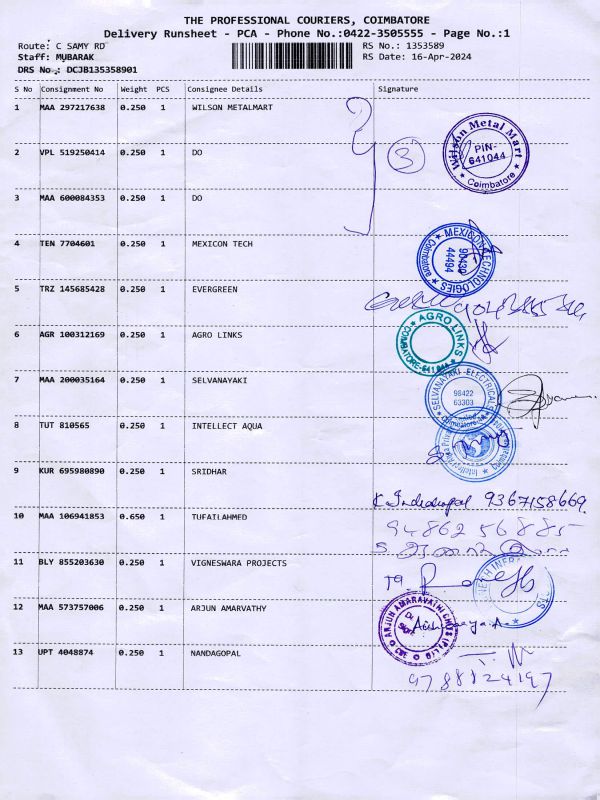 THE PROFESSIONAL COURIERS, COIMBATORE
Delivery Runsheet - PCA - Phone No.:0422-3505555 - Page No.:1
Route: C SAMY RD
RS No.: 1353589
Staff: MUBARAK
RS Date: 16-Apr-2024
DRS No.: DCJB135358901
S No Consignment No Weight PCS Consignee Details Signature
1 MAA 297217638 0.250 1 WILSON METALMART
Wilson Metal Mart
PIN-
641044
Coimbatore
3
2 VPL 519250414 0.250 1 DO
3 MAA 600084353 0.250 1 DO
4 TEN 7704601 0.250 1 MEXICON TECH
MEXICON TECHNOLOGIES
90430
44494
Coimbatore
5 TRZ 145685428 0.250 1 EVERGREEN
6 AGR 100312169 0.250 1 AGRO LINKS
AGRO LINKS
COIMBATORE-641044
7 MAA 200035164 0.250 1 SELVANAYAKI
SELVANAYAKI ELECTRICALS
98422
63303
8 TUT 810565 0.250 1 INTELLECT AQUA
9 KUR 695980890 0.250 1 SRIDHAR
9367158669
10 MAA 106941853 0.650 1 TUFAILAHMED
94862 56885
11 BLY 855203630 0.250 1 VIGNESWARA PROJECTS
12 MAA 573757006 0.250 1 ARJUN AMARVATHY
13 UPT 4048874 0.250 1 NANDAGOPAL
9788124197